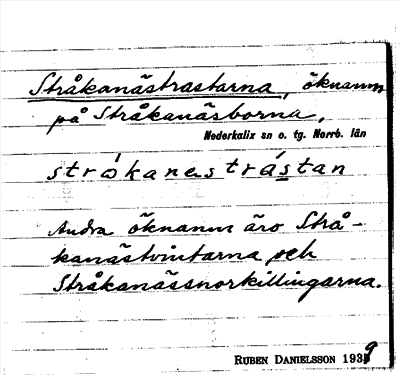 Stråkanästrastarna, öknamn
på Stråkanäsborna,
Nederkalix sn o. tg. Norrb. län
stråkanestrástan
Andra öknamn äro Strå-
kanästvintarna och
Stråkanässnorkillingarna.
RUBEN DANIELSSON 1939